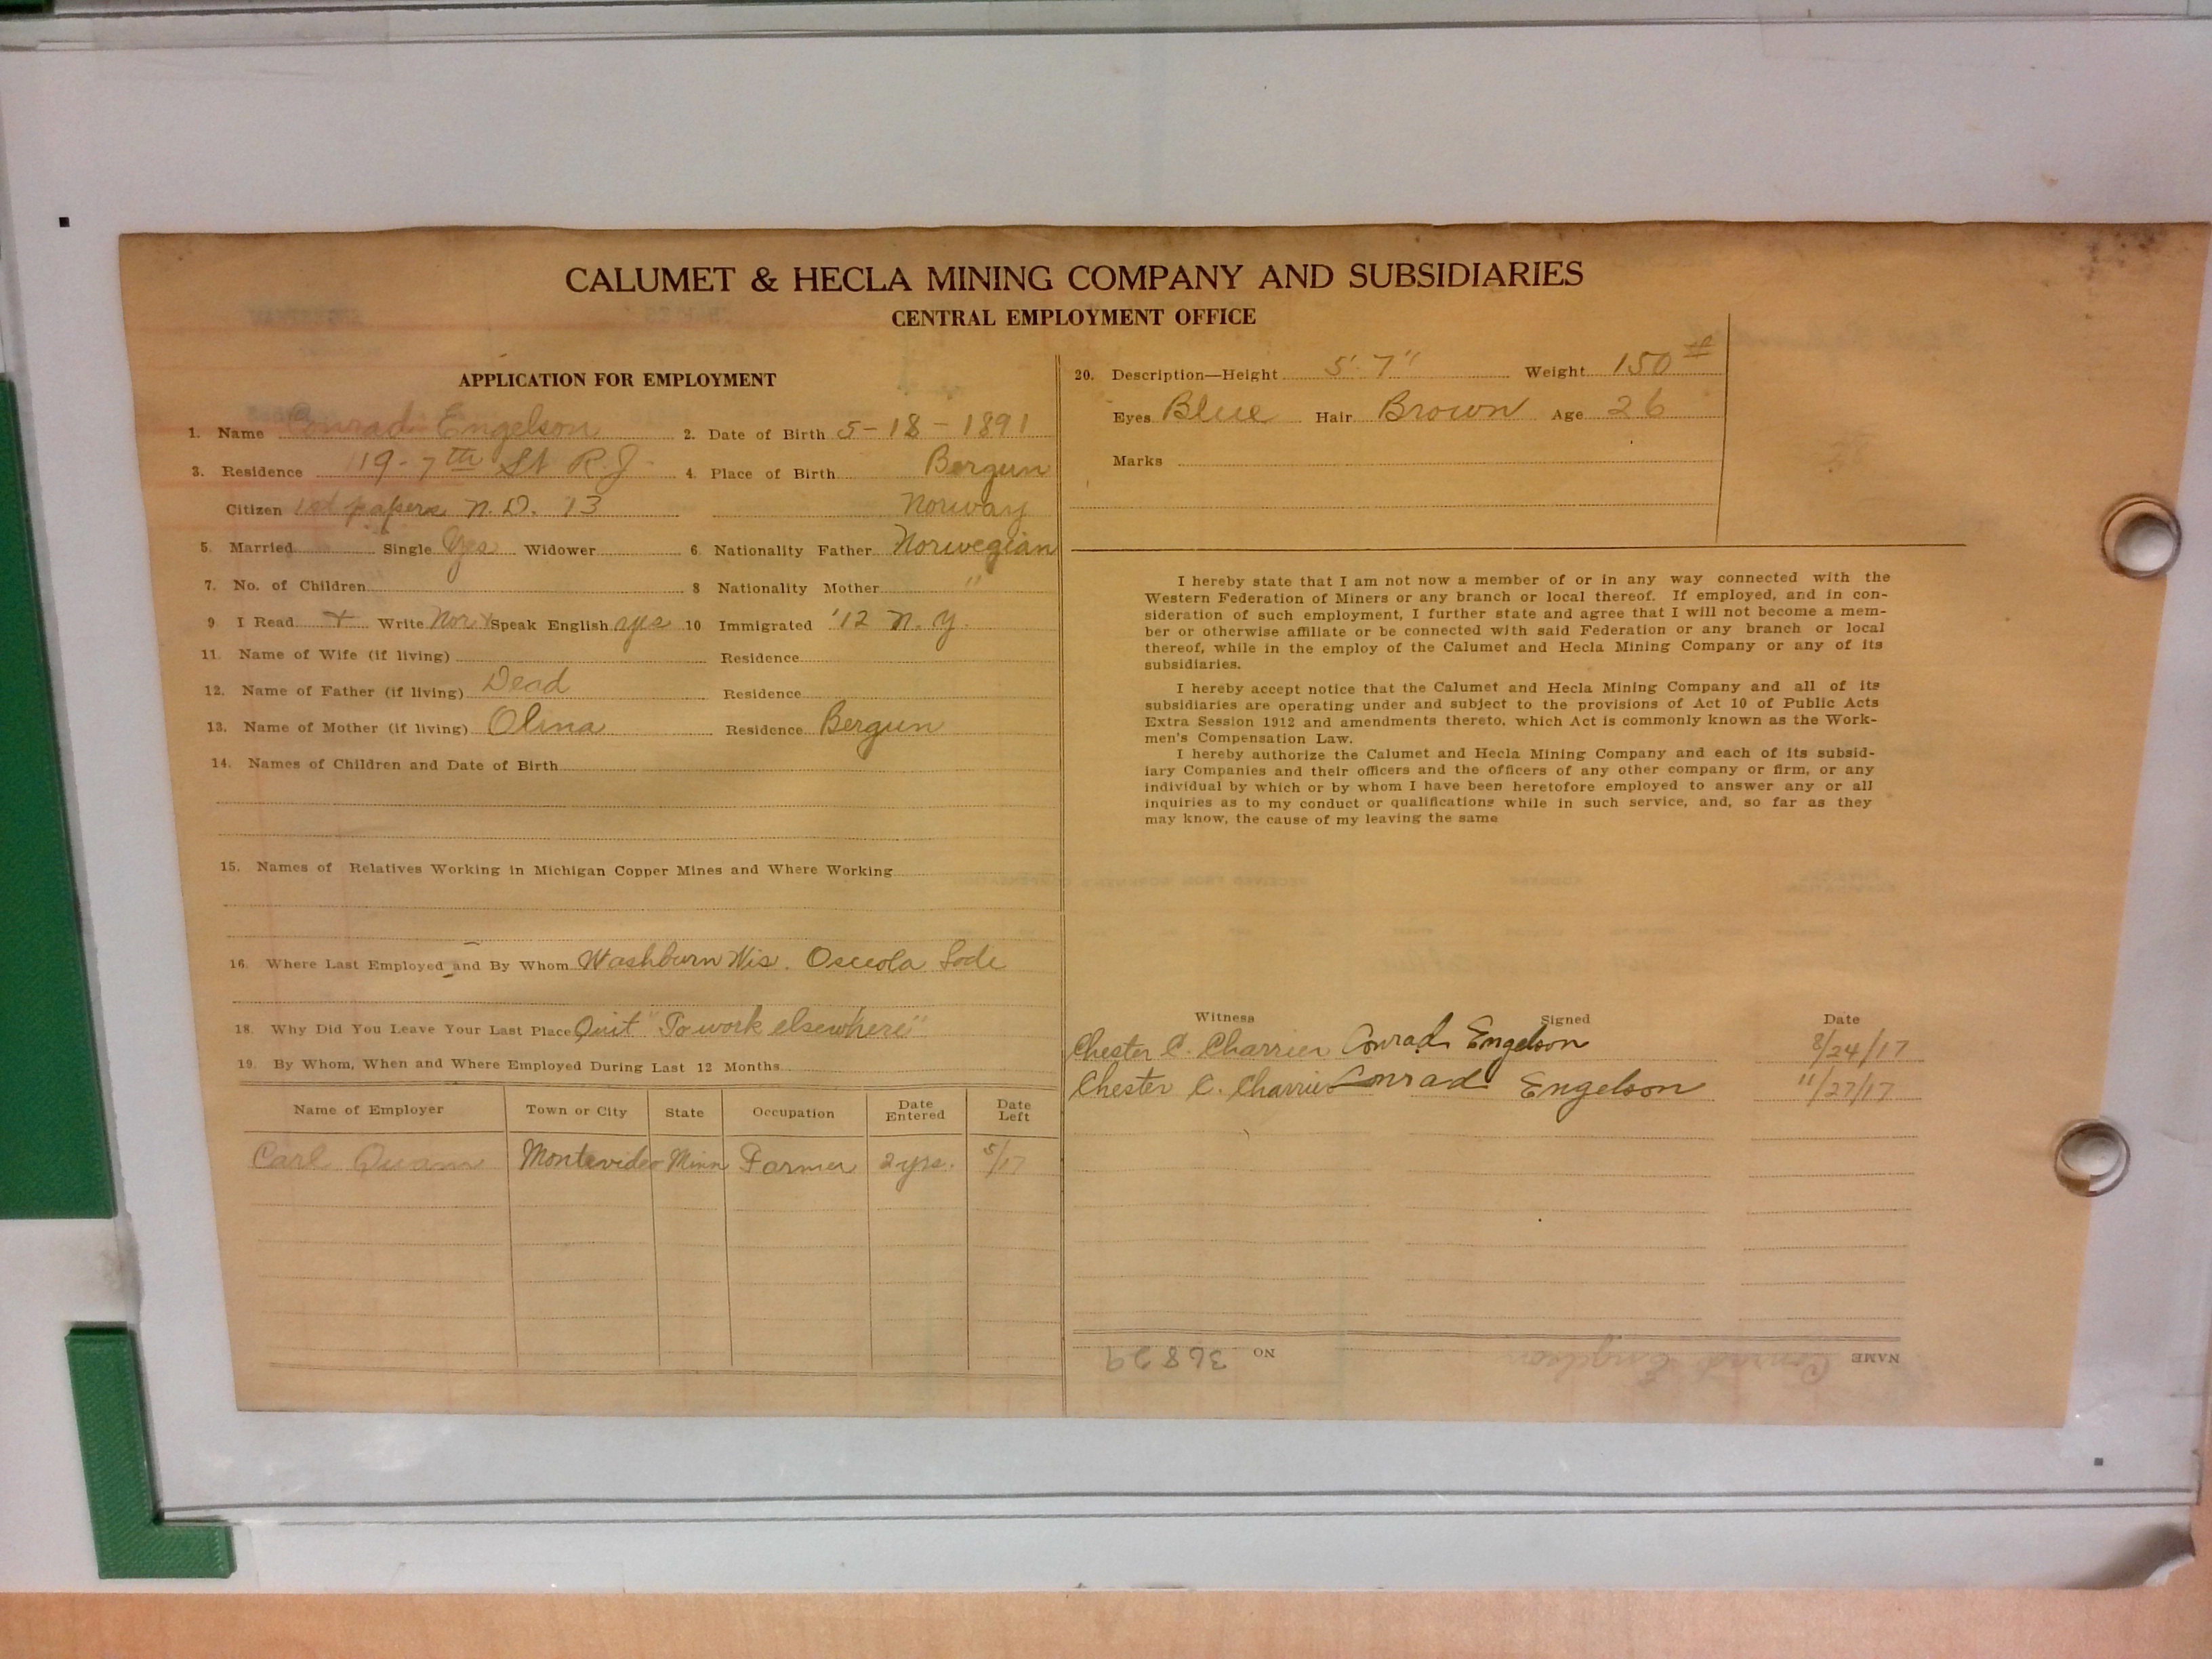 CALUMET & HECLA MINING COMPANY AND SUBSIDIARIES
CENTRAL EMPLOYMENT OFFICE
APPLICATION FOR EMPLOYMENT
1. Name Conrad Engelson 2. Date of Birth 5-18-1891
3. Residence 119-7th St R.J. 4. Place of Birth Bergun
Citizen 1st papers N.D. '13 Norway
5. Married Single Yes Widower 6. Nationality Father Norwegian
7. No. of Children 8 Nationality Mother "
9 I Read + Write Nor + Speak English yes 10 Immigrated '12 N.Y.
11. Name of Wife (if living) Residence
12. Name of Father (if living) Dead Residence
13. Name of Mother (if living) Olina Residence Bergun
14. Names of Children and Date of Birth
15. Names of Relatives Working in Michigan Copper Mines and Where Working
16. Where Last Employed and By Whom Washburn Wis. Osceola Lode
18. Why Did You Leave Your Last Place Quit "To work elsewhere"
19. By Whom, When and Where Employed During Last 12 Months
Name of Employer Town or City State Occupation Date Entered Date Left
Carl Quam Montevideo Minn Farmer 2 yrs. 5/17
20. Description—Height 5' 7" Weight 150 #
Eyes Blue Hair Brown Age 26
Marks
I hereby state that I am not now a member of or in any way connected with the
Western Federation of Miners or any branch or local thereof. If employed, and in con-
sideration of such employment, I further state and agree that I will not become a mem-
ber or otherwise affiliate or be connected with said Federation or any branch or local
thereof, while in the employ of the Calumet and Hecla Mining Company or any of its
subsidiaries.
I hereby accept notice that the Calumet and Hecla Mining Company and all of its
subsidiaries are operating under and subject to the provisions of Act 10 of Public Acts
Extra Session 1912 and amendments thereto, which Act is commonly known as the Work-
men's Compensation Law.
I hereby authorize the Calumet and Hecla Mining Company and each of its subsid-
iary Companies and their officers and the officers of any other company or firm, or any
individual by which or by whom I have been heretofore employed to answer any or all
inquiries as to my conduct or qualifications while in such service, and, so far as they
may know, the cause of my leaving the same
Witness Signed Date
Chester C. Charrier Conrad Engelson 8/24/17
Chester C. Charrier Conrad Engelson 11/27/17
NAME Conrad Engelson NO 36829